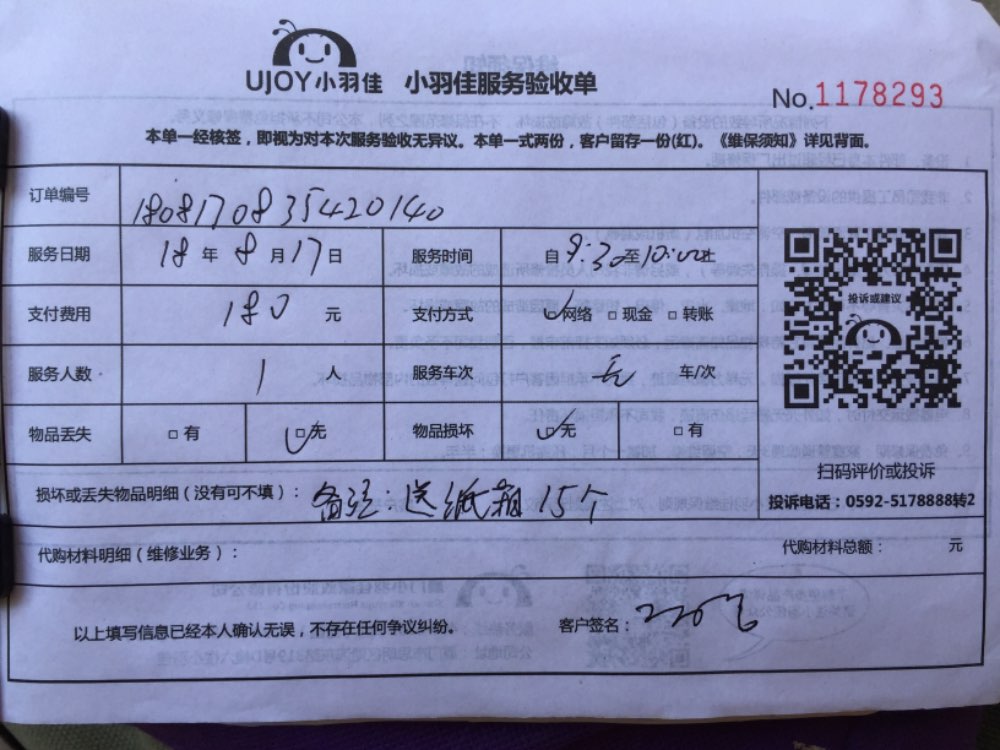 UJOY小羽佳 小羽佳服务验收单
No.1178293
本单一经核签，即视为对本次服务验收无异议。本单一式两份，客户留存一份(红)。《维保须知》详见背面。
订单编号 180817083542014​0
服务日期 18 年 8 月 17 日 服务时间 自 9:30 至 10:00 止
支付费用 180 元 支付方式 网络 □ 现金 □ 转账
投诉或建议
服务人数 1 人 服务车次 无 车/次
物品丢失 □ 有 □ 无 物品损坏 □ 无 □ 有
扫码评价或投诉
损坏或丢失物品明细（没有可不填）： 备注：送纸箱15个
投诉电话：0592-5178888转2
代购材料明细（维修业务）： 代购材料总额： 元
以上填写信息已经本人确认无误，不存在任何争议纠纷。 客户签名：